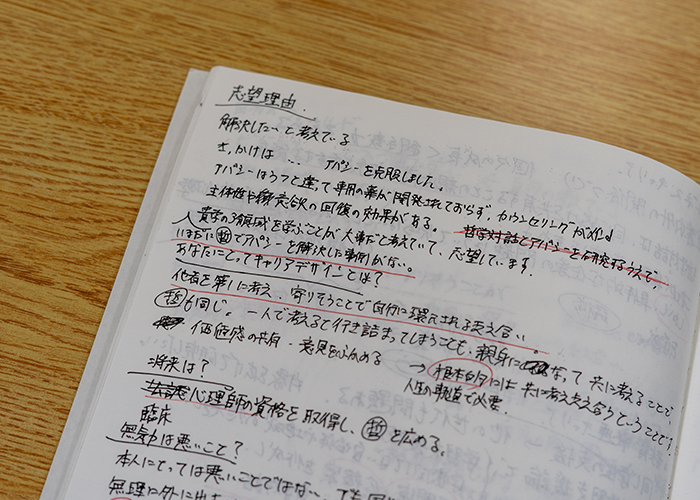 志望理由.
解決したいと考えている
きっかけは … アパシーを克服しました。
アパシーはうつと違って専用の薬が開発されておらず、カウンセリングがメイン
主体性や意欲の回復の効果がある。 哲学対話とアパシーを研究するうえで、
人 貴学の3領域を学ぶことが大事だと考えていて、志望しています。
いまだに哲でアパシーを解決した事例がない。
あなたにとってキャリアデザインとは?
他者を第1に考え、寄りそうことで自分に還元される支え合い。
哲も同じ。一人で考えると行き詰まってしまうことも、親身になって共に考えることで
価値感の共有・意見をふかめる → 根本的には共に考え支え合うということです。
人生の軌道で必要.
将来は?
心理師の資格を取得し、哲を広める。
臨床
無気力は悪いこと?
本人にとっては悪いことではない…
無理に外に出